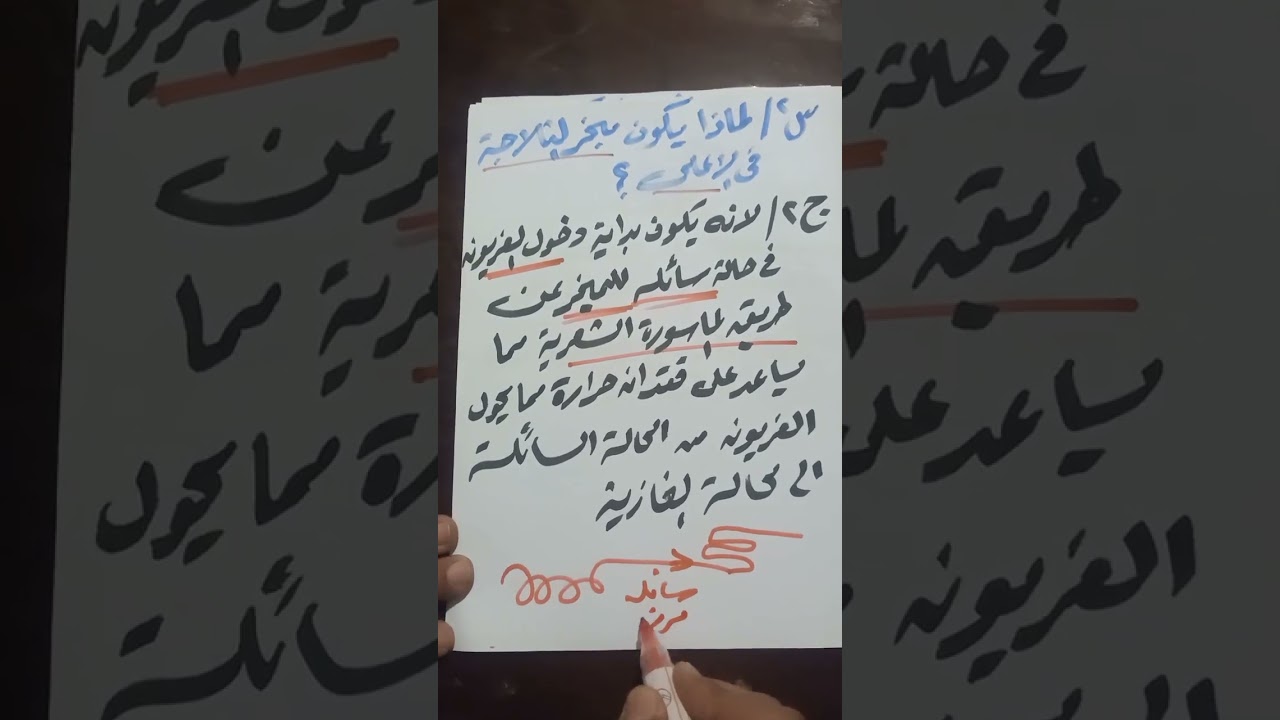 س٢/ لماذا يكون مبخر الثلاجة
في الاعلى ؟
ج٢/ لانه يكون بداية دخول الفريون
في حالة سائله للمبخر عن
طريق الماسورة الشعرية مما
يساعد على فقدان حرارة مما يحول
الفريون من الحالة السائلة
الى الحالة الغازية
سائله